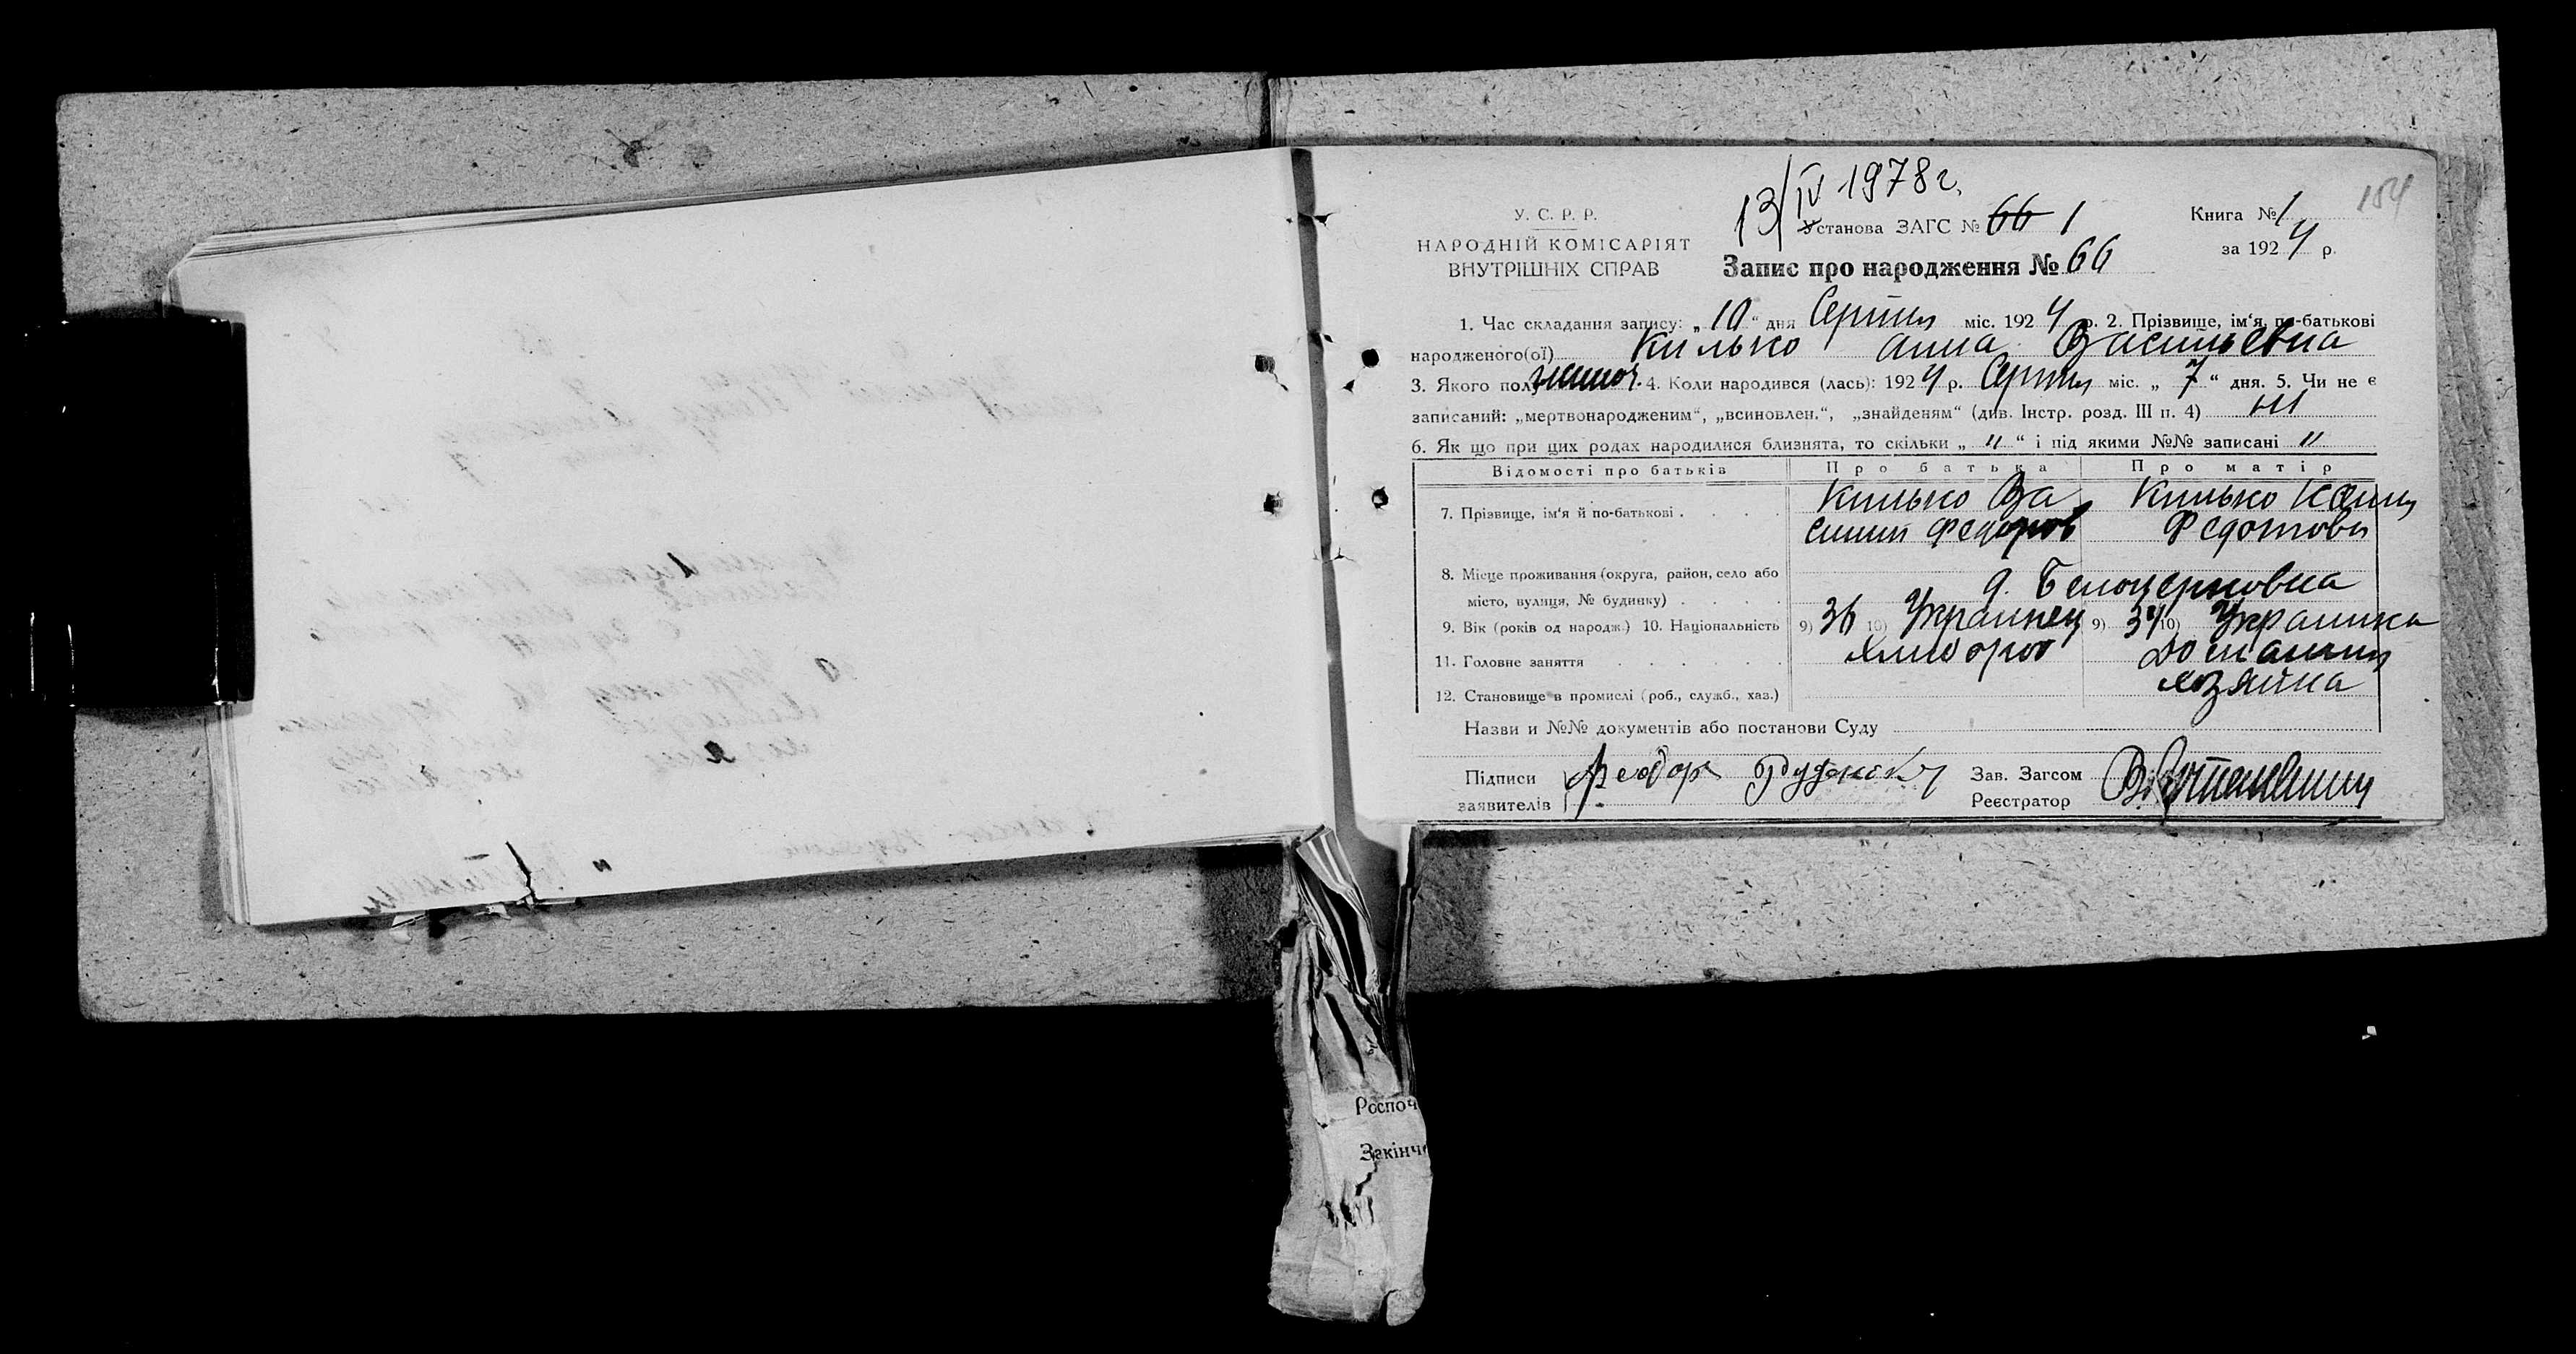 13/IV 1978 г.
154
У. С. Р. Р.
НАРОДНІЙ КОМІСАРІЯТ
ВНУТРІШНІХ СПРАВ
Установа ЗАГС № 66 1
Запис про народження № 66
Книга № 1
за 1924 р.
1. Час складання запису: „ 10 “ дня Серпня міс. 1924 р. 2. Прізвище, ім‘я, по-батькові
народженого(ої) Килько Анна Васильевна
3. Якого полу женоч. 4. Коли народився (лась): 1924 р. Серпня міс. „ 7 “ дня. 5. Чи не є
записаний: „мертвонародженим“, „всиновлен.“, „знайденям“ (див. Інстр. розд. III п. 4) ні
6. Як що при цих родах народилися близнята, то скільки „ " “ і під якими №№ записані "
Відомості про батьків Про батька Про матір
7. Прізвище, ім‘я й по-батькові . . . . Килько Ва Килько
силий Федоров Федотовн
8. Місце проживання (округа, район, село або
місто, вулиця, № будинку) . . . . д. Белоцерковка
9. Вік (років од народж.) 10. Національність 9) 36 10) Украинец 9) 34 10) Украинка
11. Головне заняття . . . . . . Хлибороб Домашня
12. Становище в промислі (роб., служб., хаз.) хозяйка
Назви и №№ документів або постанови Суду
Підписи Феодор Зав. Загсом
заявителів Реєстратор
Роспоч
Закінче